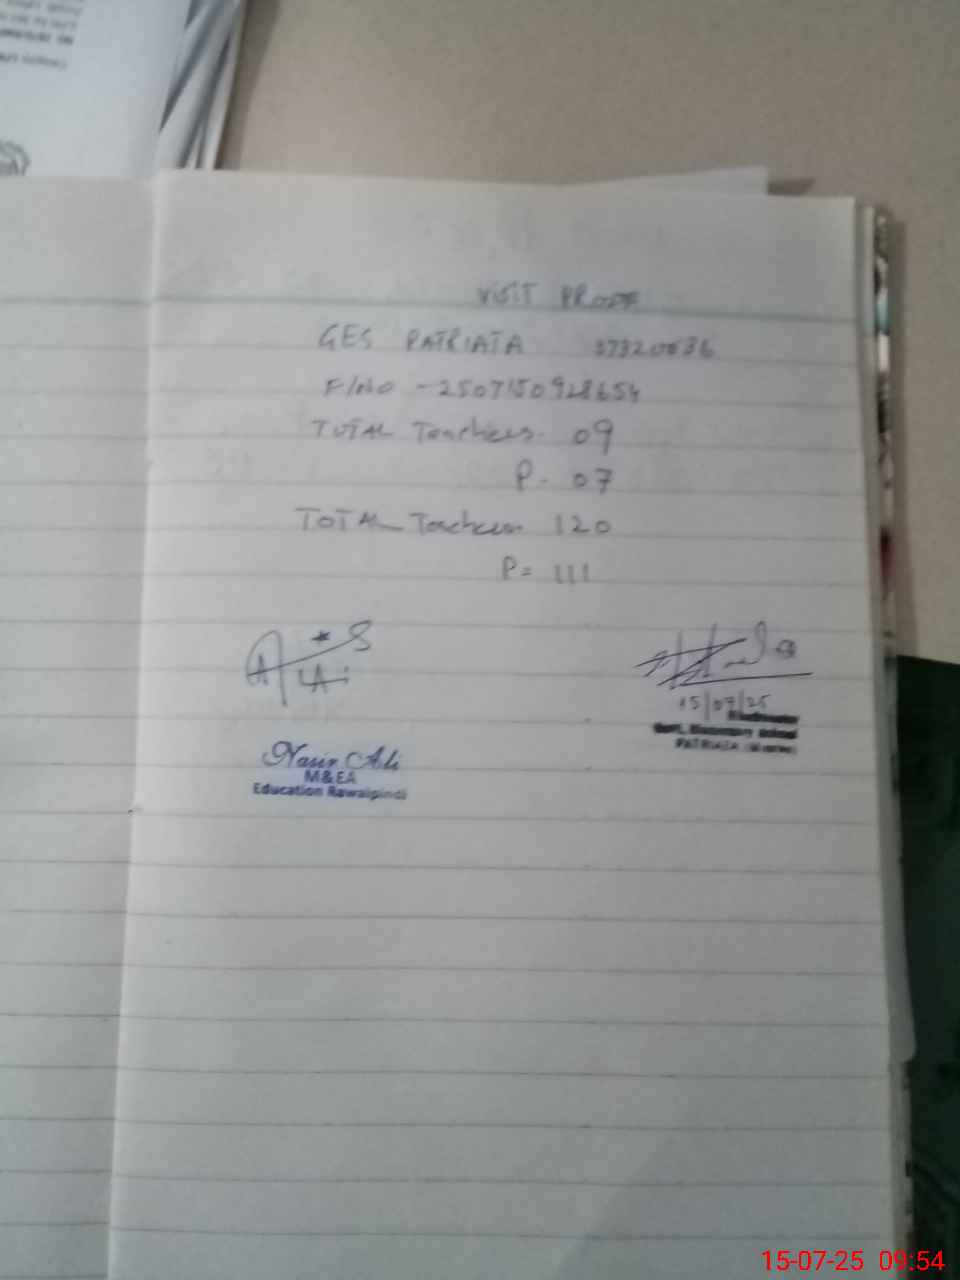 VISIT PROOF
GES PATRIATA 37320036
F/NO - 2507150928654
TOTAL Teachers. 09
P. 07
TOTAL Teachers 120
P= 111
15/07/25
Headmaster
Govt. Elementary School
PATRIATA (Murree)
Nasir Ali
M&EA
Education Rawalpindi
15-07-25 09:54